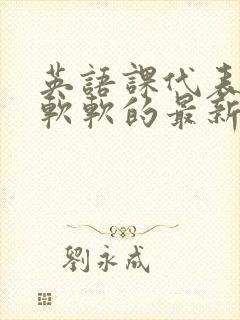 英語課代表
軟軟的最新
劉永成